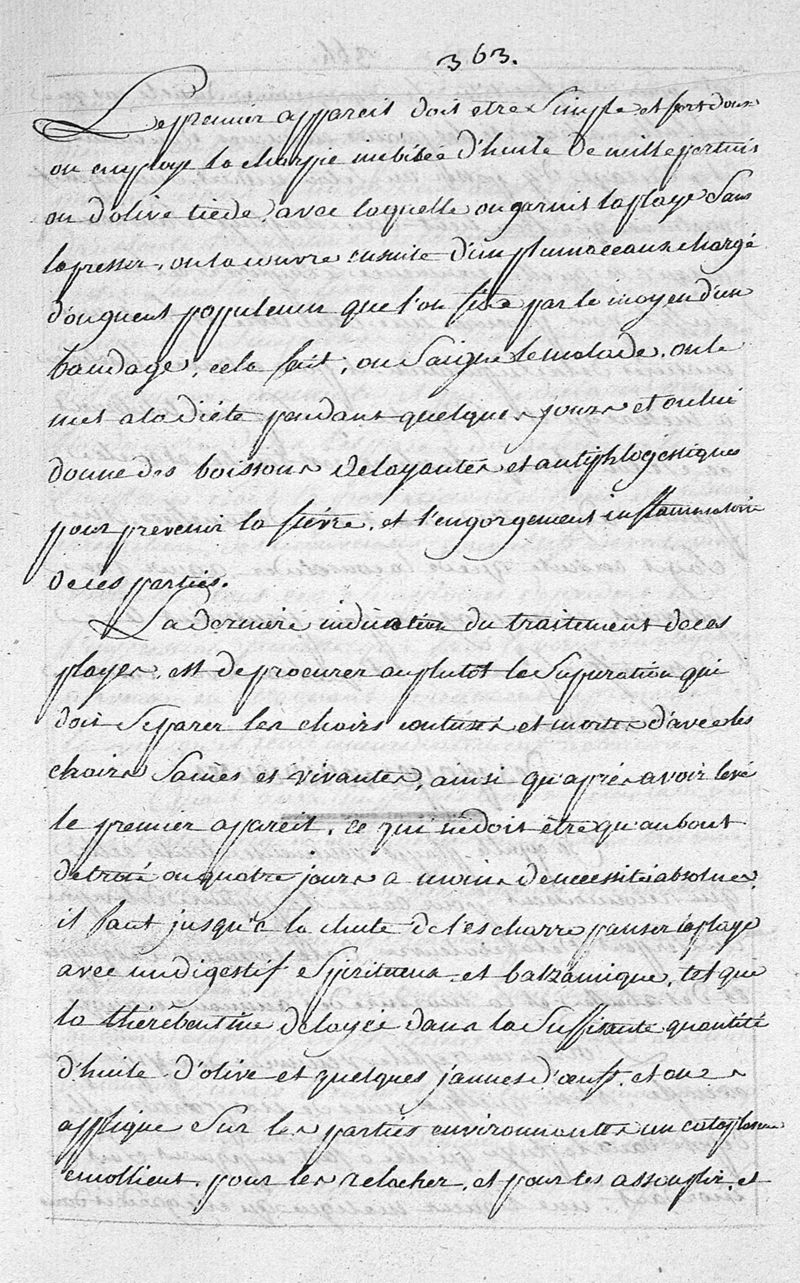 363.
Le premier appareil doit etre Simple et fort doux
on employe la charpie imbibée d'huile de mille pertuis
ou d'olive tiede, avec laquelle on garnit la playe Sans
la presser, on la couvre ensuite d'un plumaceaux chargé
d'onguent populeum que l'on fixe par le moyen d'un
bandage, cela fait, on Saigne le malade, on le
met a la diéte pendant quelques jours et on lui
donne des boissons delayantes et antiphlogistiques
pour prevenir la fiévre, et l'engorgement inflammatoire
de ces parties.
La derniere indication du traitement de ces
playes, est de procurer au plutot la Supuration qui
doit Séparer les chairs contuses et mortes d'avec les
chairs Saines et vivantes, ainsi qu'aprés avoir levé
le premier apareil, ce qui ne doit être qu'au bout
de trois ou quatre jours a moins de necessité absolue
il faut jusqu'a la chute de l'escharre panser la playe
avec un digestif Spiritueux et balzamique, tel que
la thérébentine delayée dans la Suffisante quantité
d'huile d'olive et quelques jaunes d'œufs, et on
applique Sur les parties environnantes un cataplasme
emollient, pour les relacher, et pour les assouplir, et